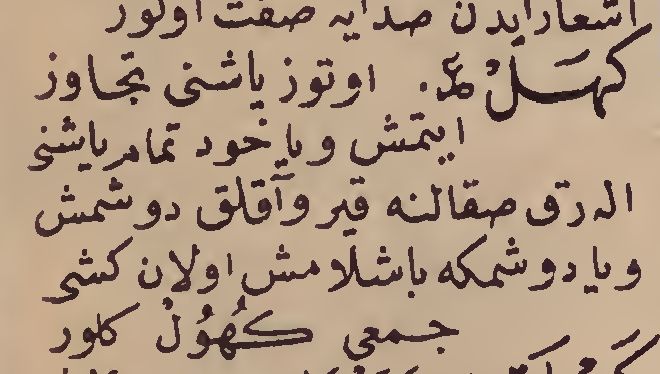 اشعار ایدن صدایه صفت اولور
كَهْلْ ع. اوتوز یاشنی تجاوز
ایتمش ویا خود تمام یاشنی
الهرق صقالنه قیر وآقلق دوشمش
ویا دوشمكه باشلامش اولان كشی
جمعی كُهُولْ كلور